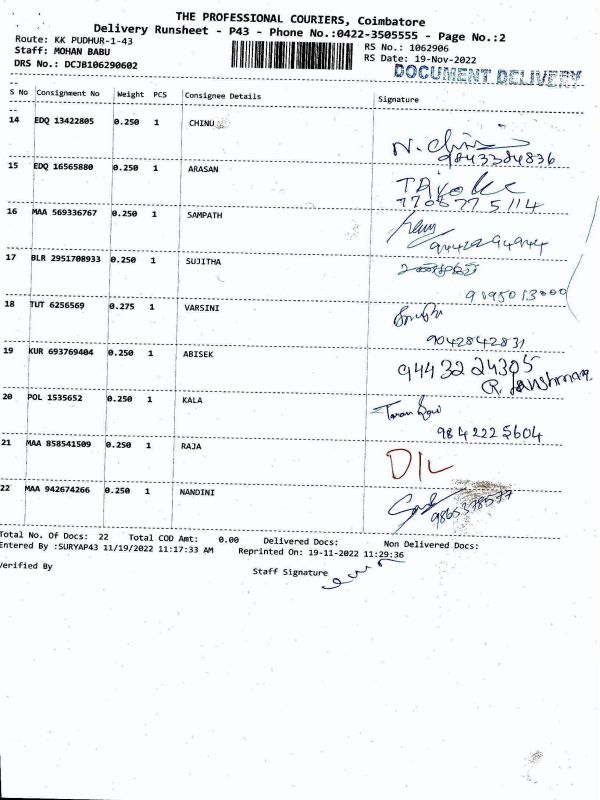 THE PROFESSIONAL COURIERS, Coimbatore
Delivery Runsheet - P43 - Phone No.:0422-3505555 - Page No.:2
Route: KK PUDHUR-1-43
RS No.: 1062906
Staff: MOHAN BABU
RS Date: 19-Nov-2022
DRS No.: DCJB106290602
DOCUMENT DELIVERY
S No Consignment No Weight PCS Consignee Details Signature
14 EDQ 13422805 0.250 1 CHINU
15 EDQ 16565880 0.250 1 ARASAN
7708775114
16 MAA 569336767 0.250 1 SAMPATH
17 BLR 2951708933 0.250 1 SUJITHA
18 TUT 6256569 0.275 1 VARSINI
9042842831
19 KUR 693769404 0.250 1 ABISEK
9443224305
20 POL 1535652 0.250 1 KALA
9842225604
21 MAA 858541509 0.250 1 RAJA
D/L
22 MAA 942674266 0.250 1 NANDINI
Total No. Of Docs: 22 Total COD Amt: 0.00 Delivered Docs: Non Delivered Docs:
Entered By :SURYAP43 11/19/2022 11:17:33 AM Reprinted On: 19-11-2022 11:29:36
Verified By
Staff Signature